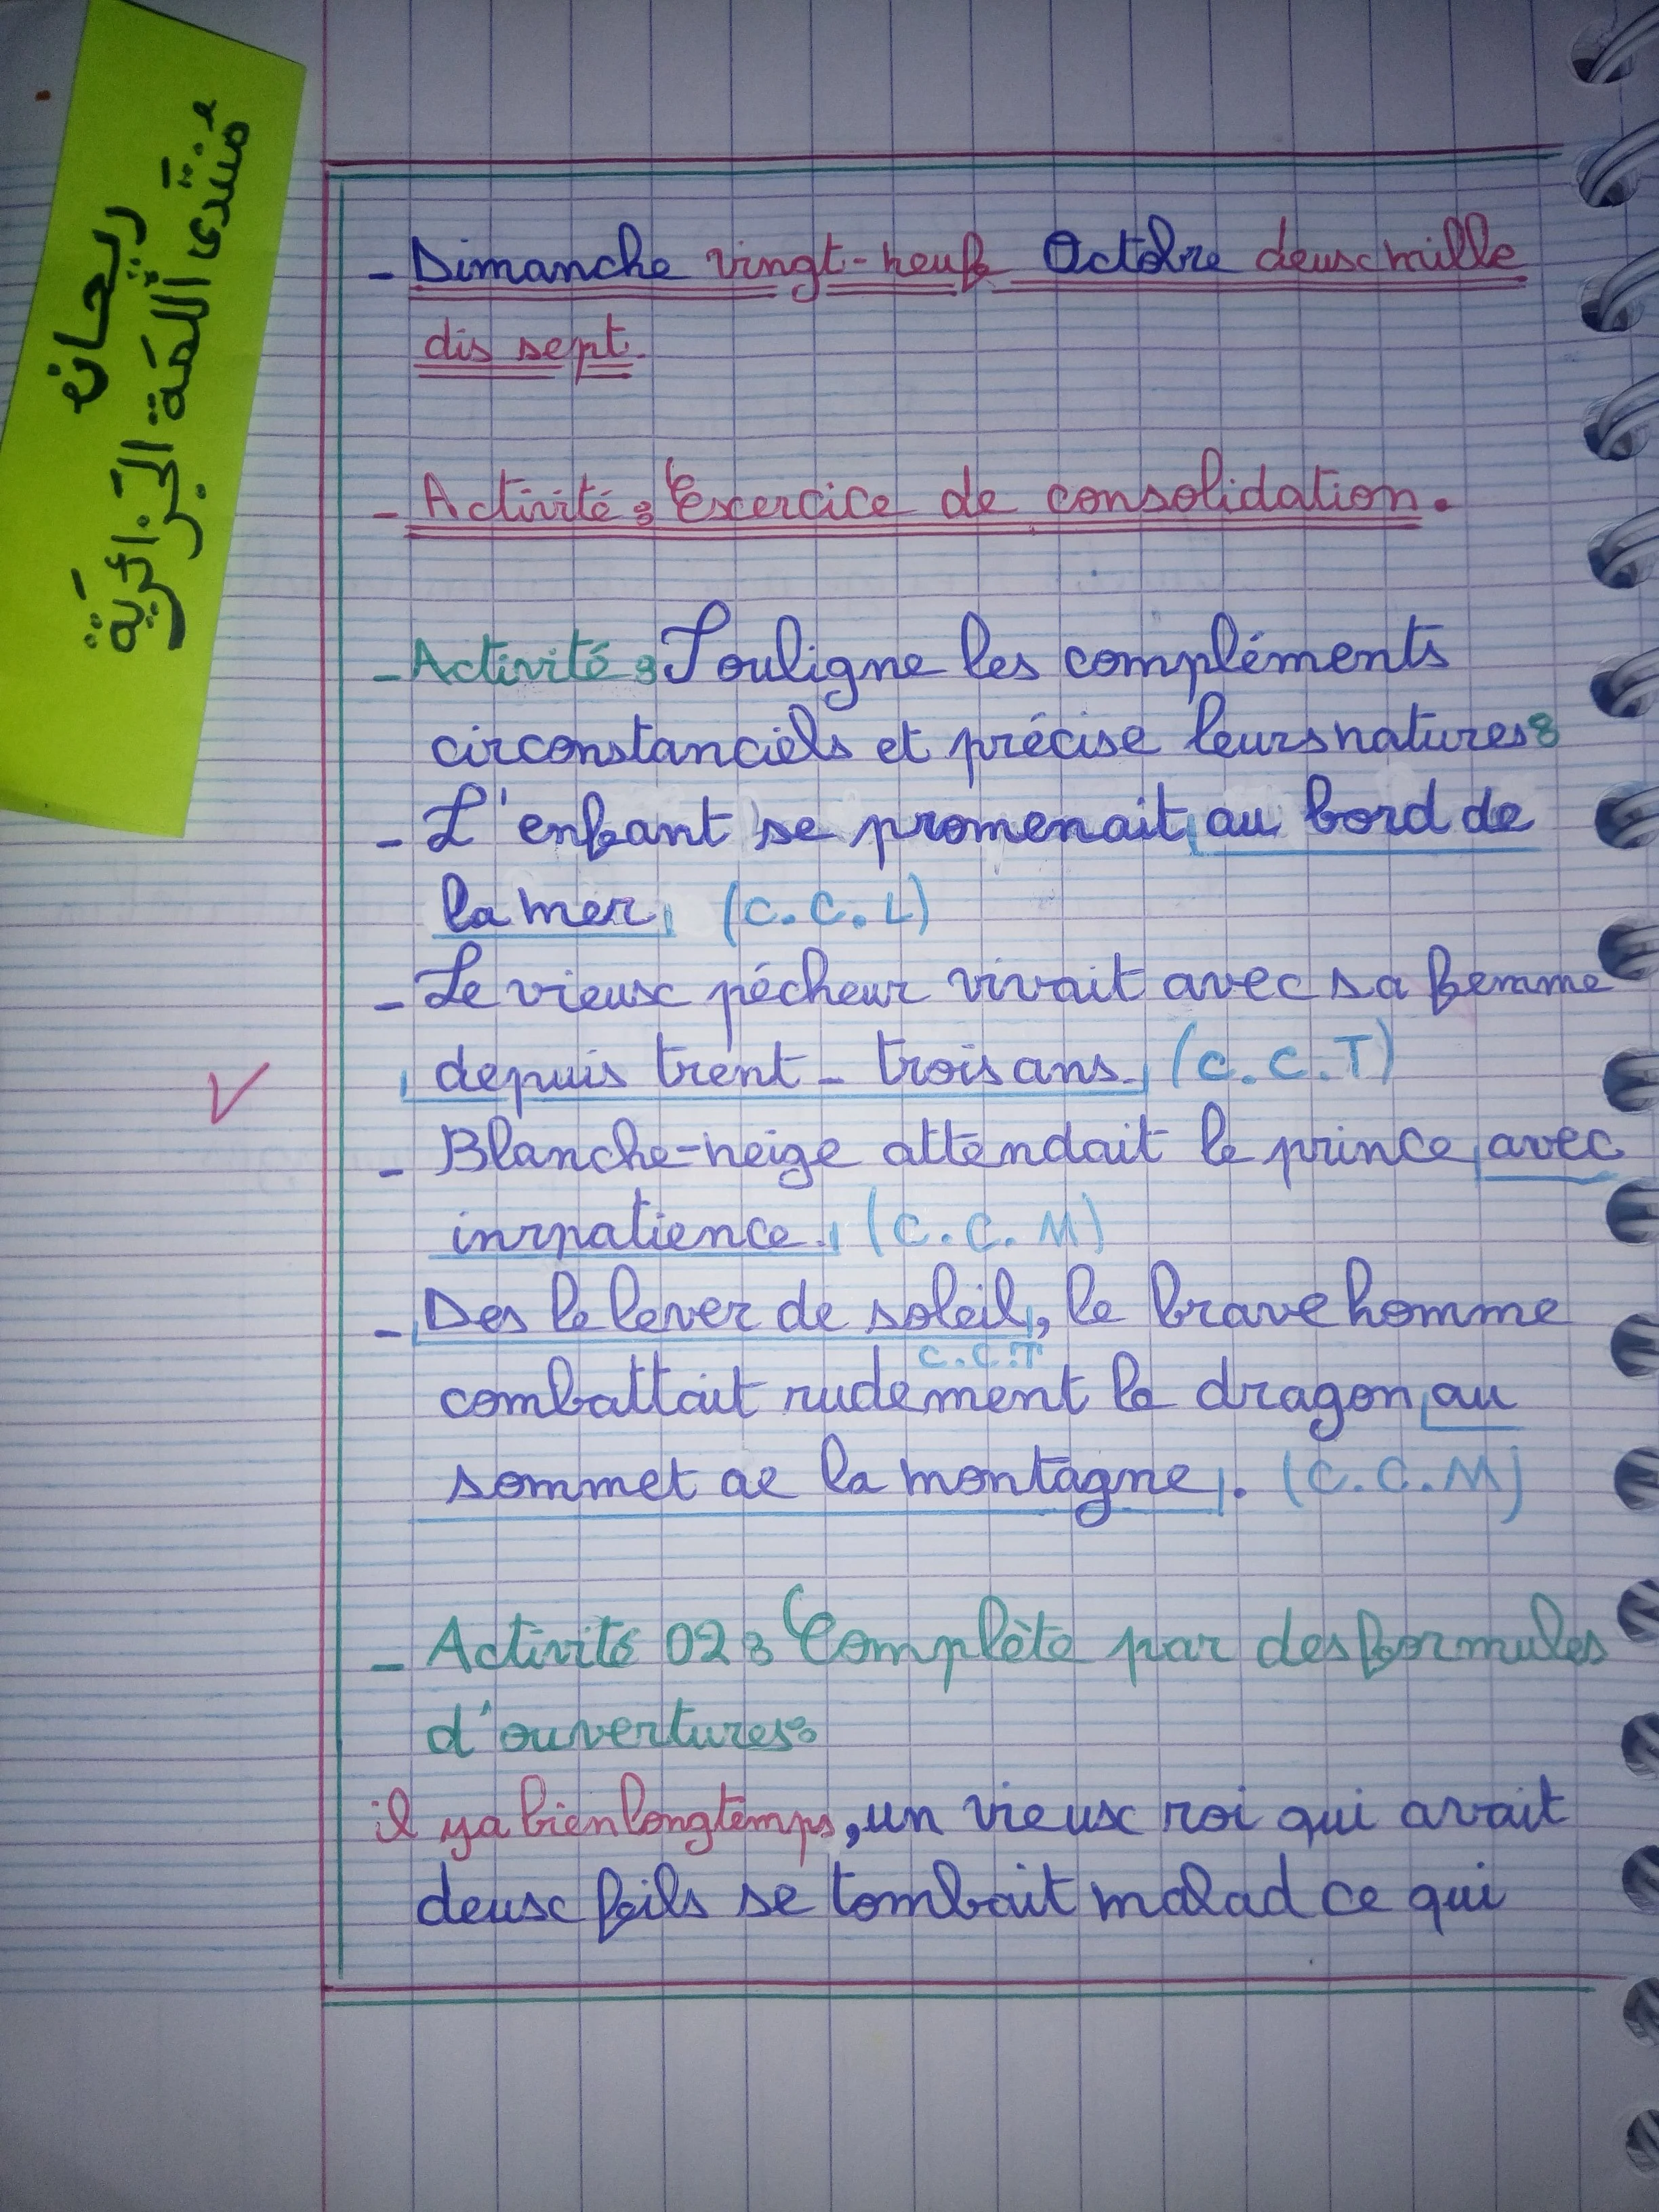 ريحانه
منتدى اللمة الجزائرية
- Dimanche vingt-neuf Octobre deux mille
dis sept.
- Activité : Exercice de consolidation.
- Activité : Souligne les compléments
circonstanciels et précise leurs natures :
- L'enfant se promenait au bord de
la mer, (C.C.L)
- Le vieux pécheur vivait avec sa femme
depuis trent-trois ans. (C.C.T)
- Blanche-neige attendait le prince avec
inrpatience. (C.C.M)
- Des le lever de soleil, le brave homme
C.C.T
combattait rudement le dragon au
sommet de la montagne. (C.C.M)
- Activité 02 : Complète par des formules
d'ouvertures :
il ya bien longtemps, un vieux roi qui avait
deux fails se tombait malad ce qui